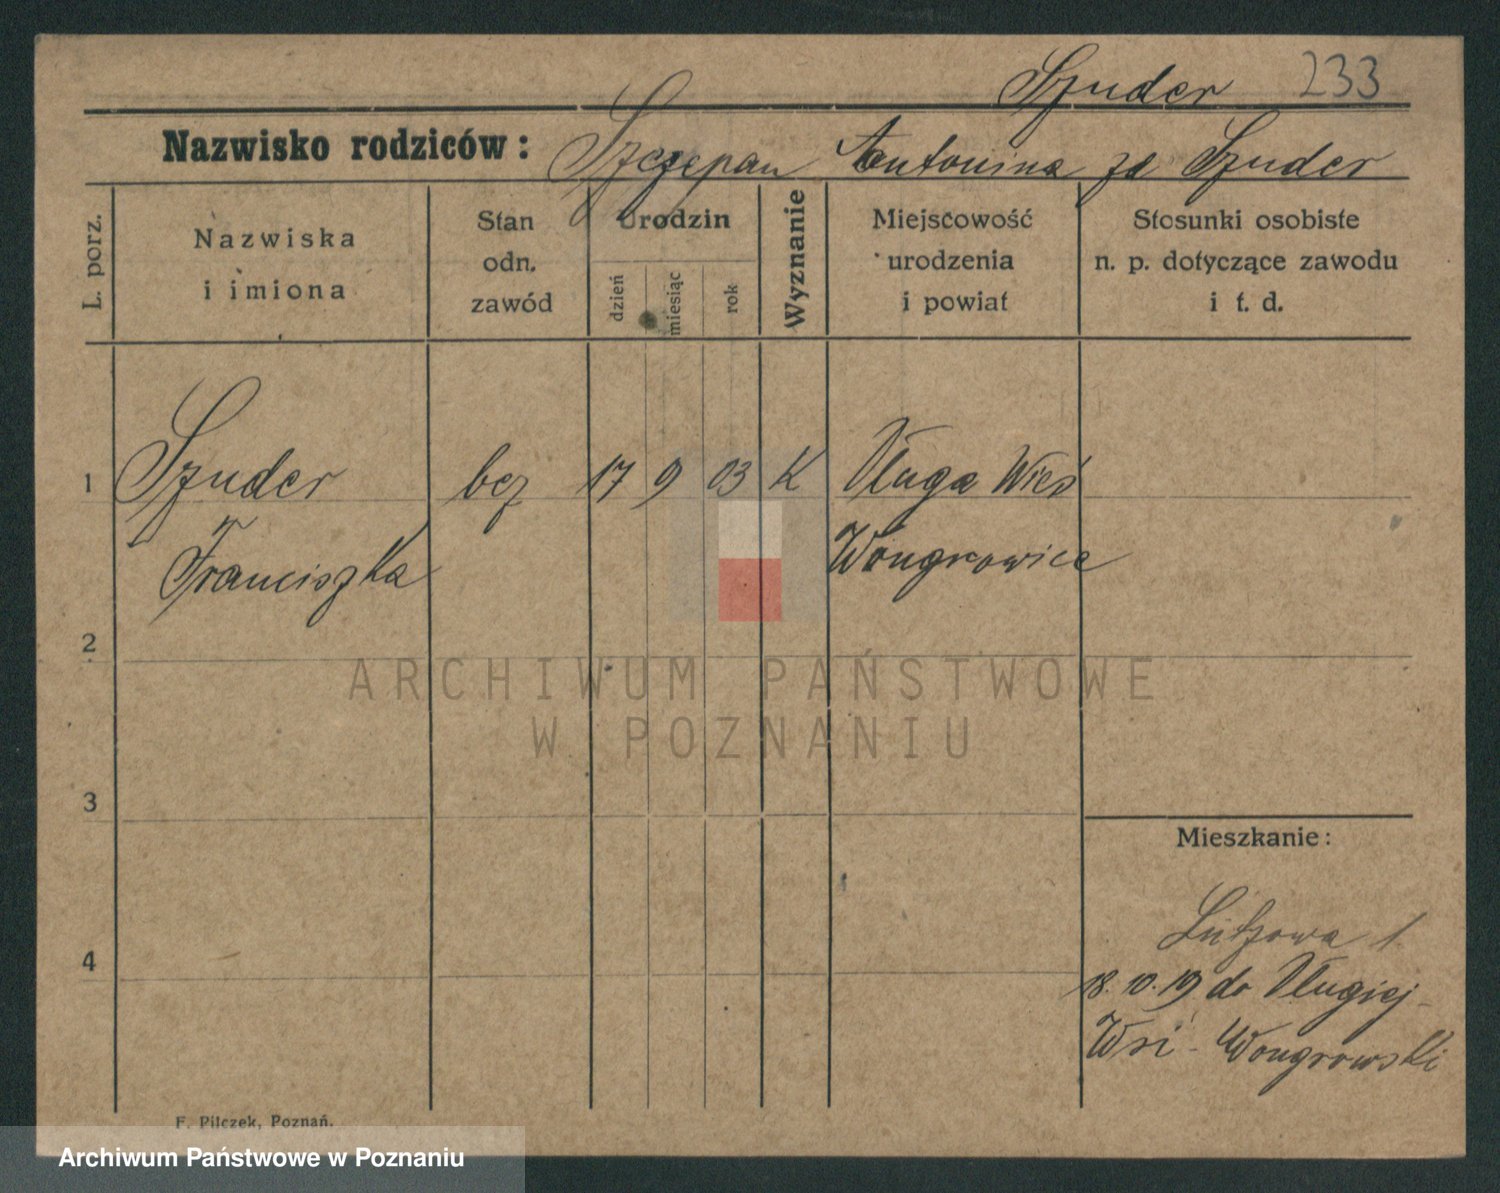 Szuder 233
Nazwisko rodziców: Szczepan Antonina zd Szuder
L. porz.
Nazwiska
i imiona
Stan
odn.
zawód
Urodzin
dzień
miesiąc
rok
Wyznanie
Miejscowość
urodzenia
i powiat
Stosunki osobiste
n. p. dotyczące zawodu
i t. d.
1 Szuder bez 17 9 03 K Długa Wieś
Franciszka Wongrowice
2
3
4
Mieszkanie:
Lützowa 1
18. 10. 19 do Długiej-
Wsi - Wongrowski
F. Pilczek, Poznań.
ARCHIWUM PAŃSTWOWE
W POZNANIU
Archiwum Państwowe w Poznaniu